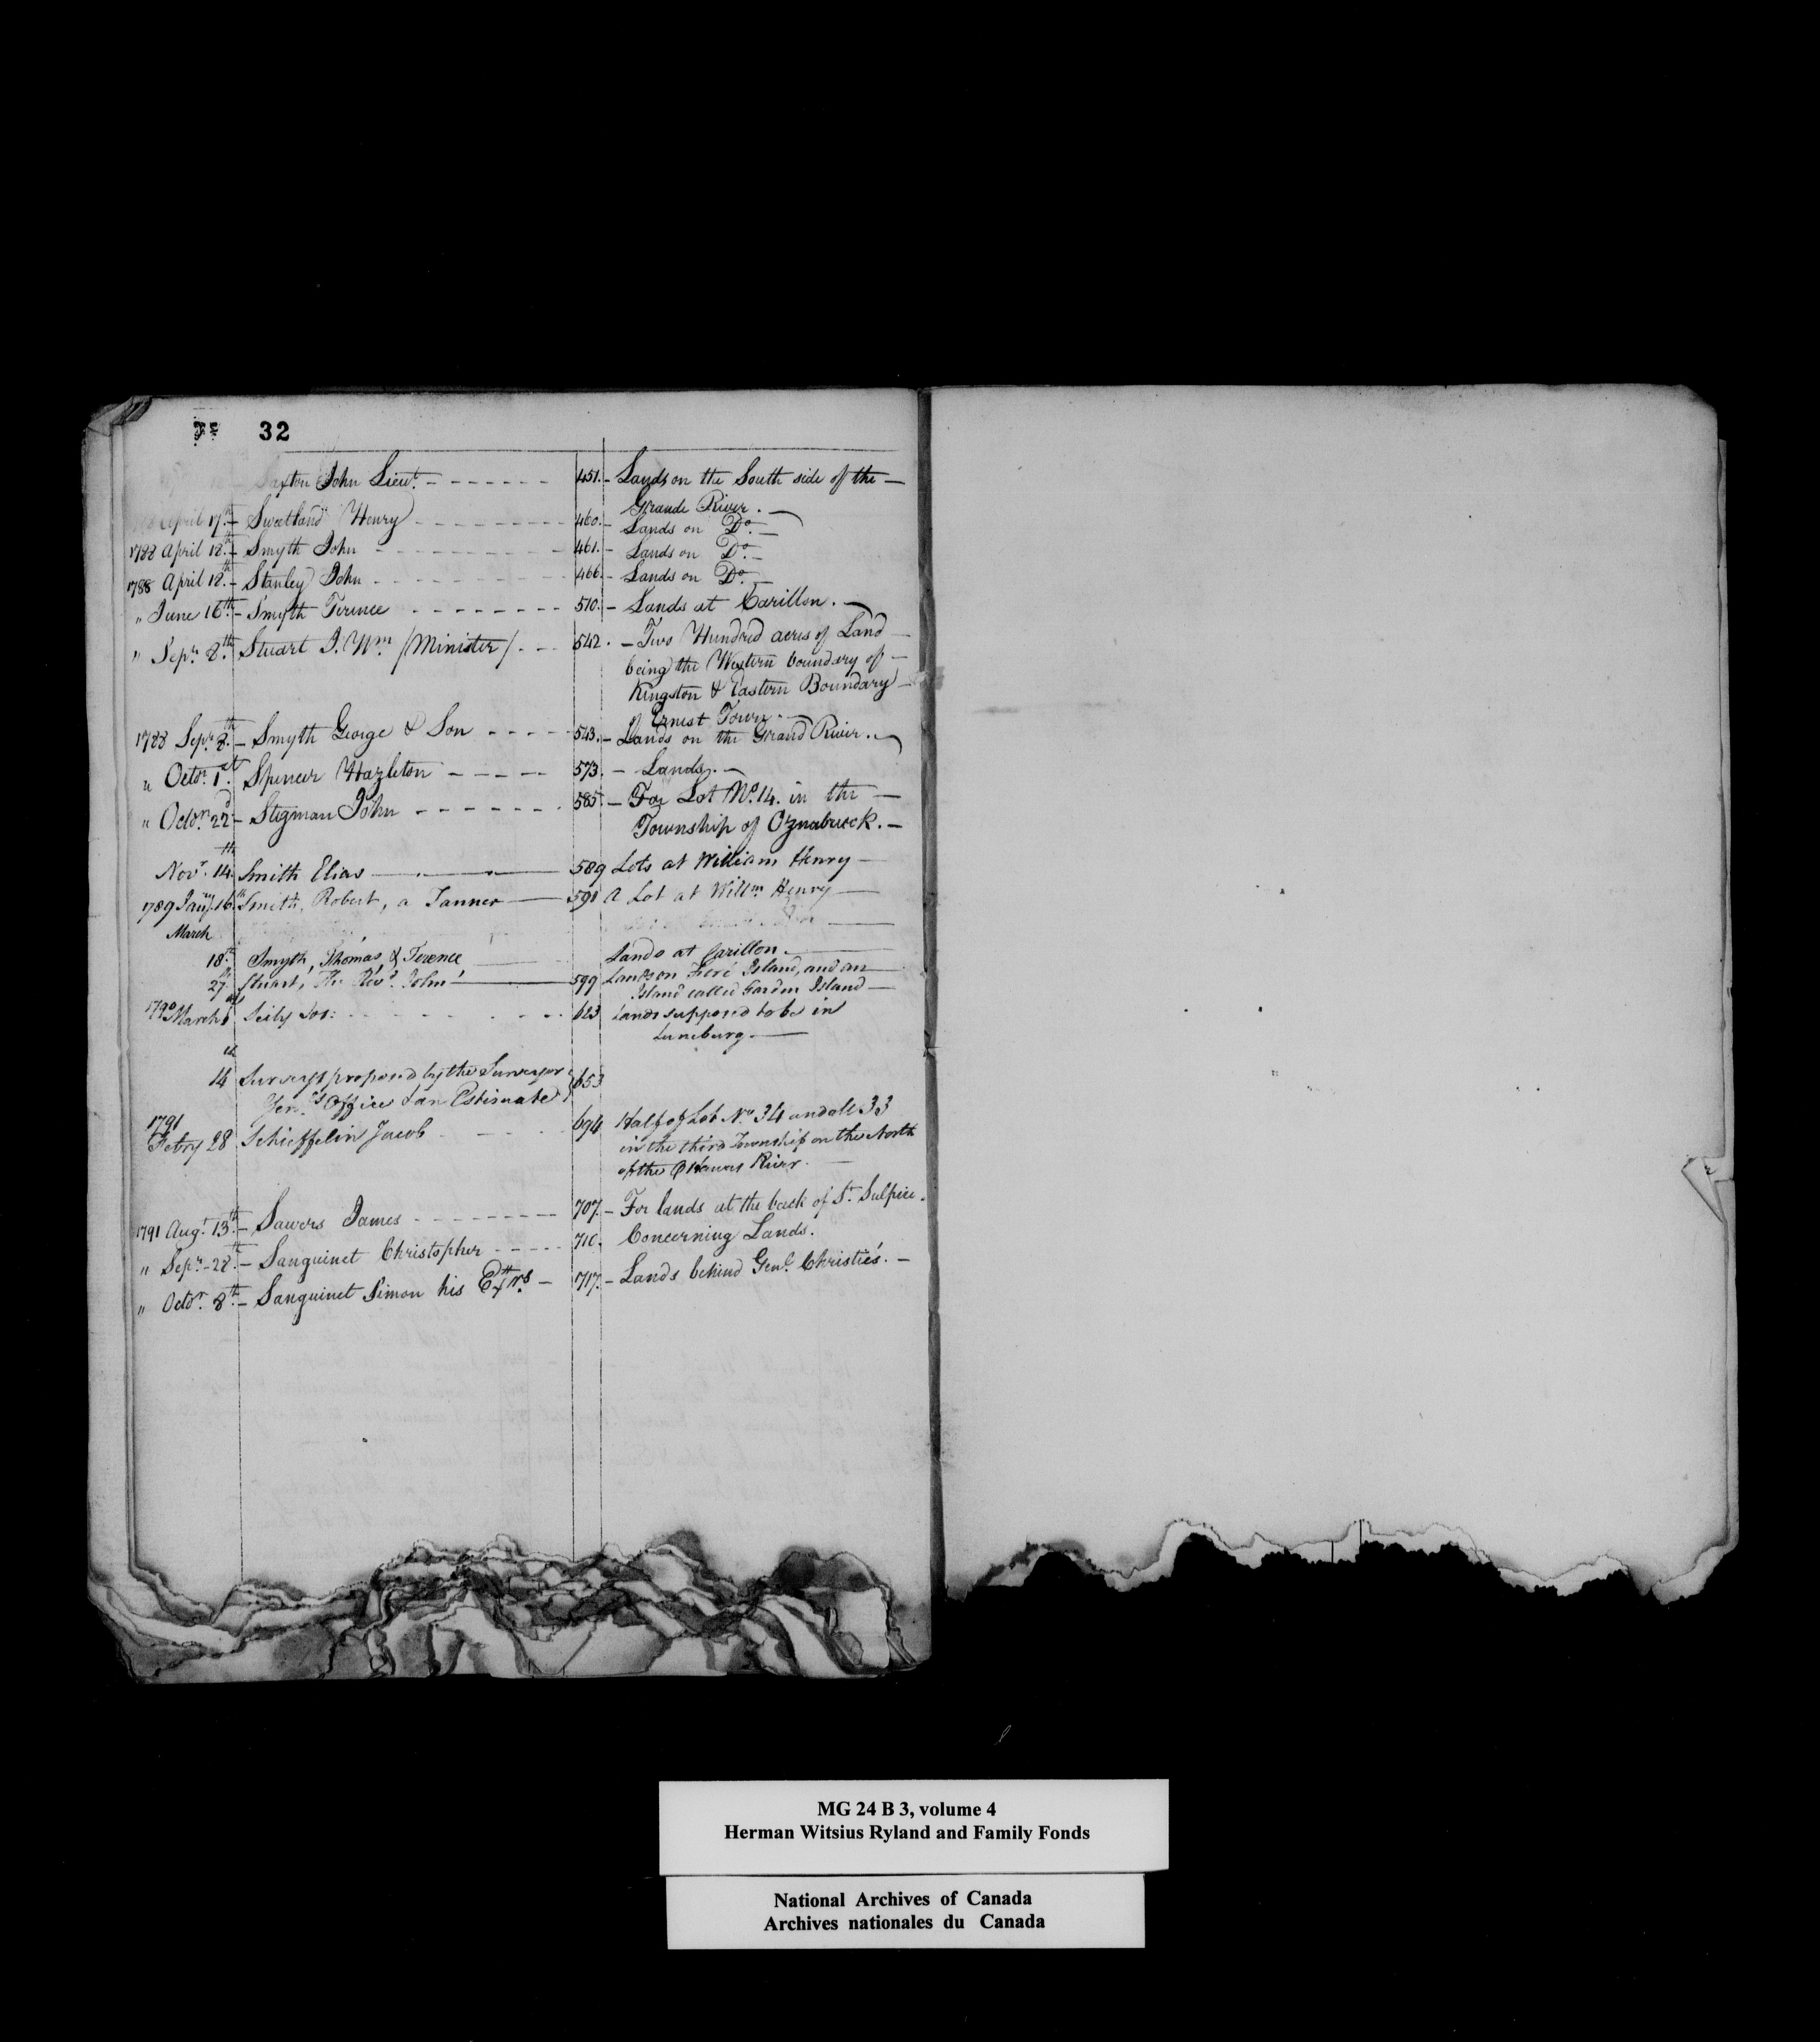 32
Saxton John Lieut. - - - - - - - 451. - Lands on the South side of the -
Grande River. -
April 17th - Sweetland Henry - - - - - - - 460. - Lands on Do. -
1788 April 18th - Smyth John - - - - - - - 461. - Lands on Do. -
1788 April 18th - Stanley John - - - - - - - 466. - Lands on Do. -
" June 16th - Smyth Terence - - - - - - - 510. - Lands at Carillon. -
" Sepr. 8th Stuart J. Wm. /Minister/. - - 542. - Two Hundred acres of Land -
being the Western boundary of -
Kingston & Eastern Boundary -
of Ernest Town. -
1788 Sepr. 8th - Smyth George & Son - - - - 543. - Lands on the Grand River. -
" Octor. 1st. Spencer Hazleton - - - - 573. - Lands. -
" Octor. 22d - Stegman John - - - - - - 585. - For Lot No. 14. in the -
Township of Oznabruck. -
Novr. 14th Smith Elias - 589 Lots at William Henry -
1789 Jany. 16th Smith, Robert, a Tanner - 591 A Lot at Willm. Henry -
March
18th. Smyth, Thomas, & Terence Lands at Carillon. -
27th Stuart, The Revd. John - 599 Lands on Island, and an
Island called Garden Island -
1790 March Seily Jos: - - - - - 623 Lands supposed to be in
Luneburg. -
14th Surveys proposed by the Surveyor 653
Genl's Office & an Estimate
1791
Febry 28 Schieffelin Jacob - - - 694 Half of Lot No. 34 and all 33
in the third Township on the North
of the Ottawas River. -
1791 Augt. 13th. - Sawers James - - - - - - - 707. - For lands at the back of St. Sulpice.
" Sepr. - 28th. - Sanguinet Christopher - - - - 710. Concerning Lands.
" Octor. 8th. - Sanguinet Simon his Extrs. - 717. - Lands behind Genl. Christie's. -
MG 24 B 3, volume 4
Herman Witsius Ryland and Family Fonds
National Archives of Canada
Archives nationales du Canada